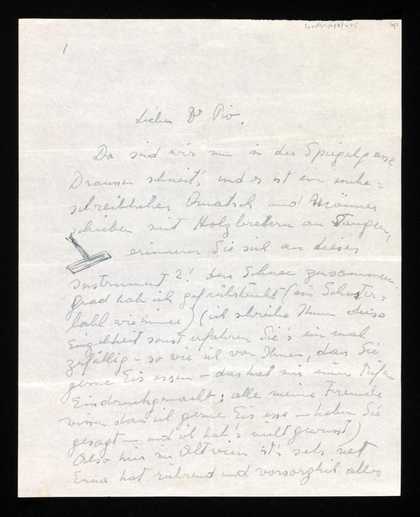 1
Lieber Dr Piv.
Da sind wir nun in der Spiegelgasse
Draussen schneit's und es ist ein unbe-
schreiblicher Quatsch und Männer
schieben mit Holzbrettern an Stangen,
erinnern Sie sich an dieses
Instrument?! den Schnee zusammen.
grad hab ich gefrühstückt (ein
wie immer) (ich schreibe Ihnen diese
Einzelheit sonst erfahren Sie's einmal
zufällig – so wie ich von Ihnen, dass Sie
gerne Eis essen – das hat mir einen tiefen
Eindruck gemacht: alle meine Freunde
wissen dass ich gerne Eis esse – haben Sie
gesagt – und ich hab's nicht gewusst)
Also hier in Altwien ist's sehr nett
Erna hat rührend und vorsorglich alles